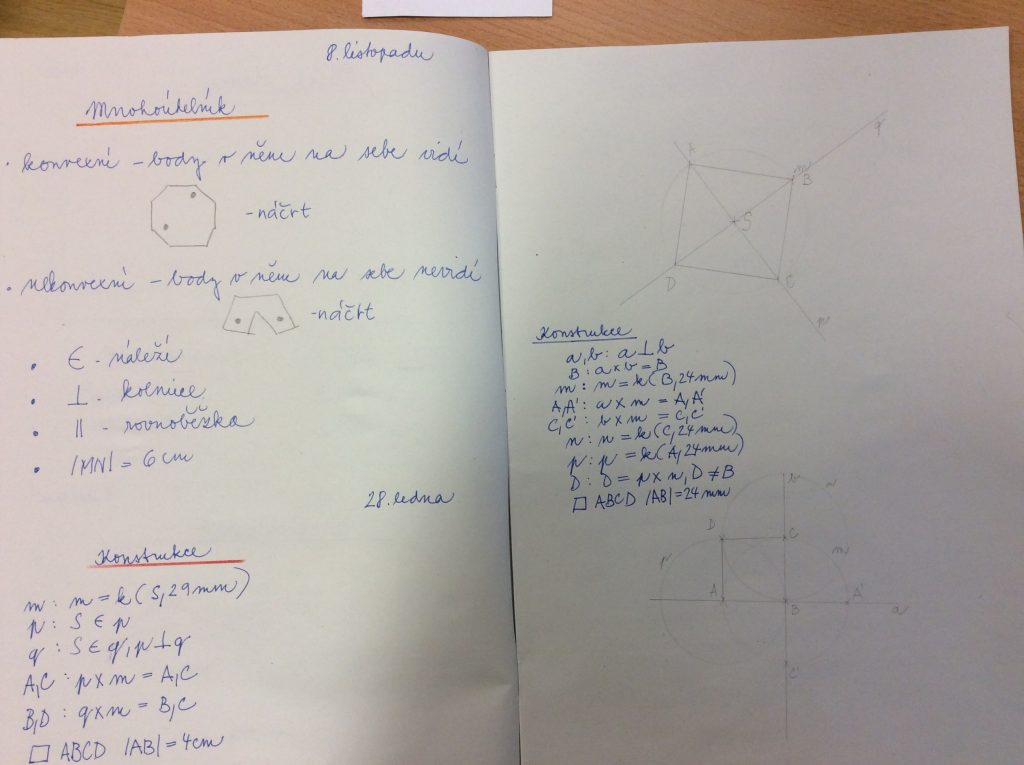 8. listopadu
Mnohoúhelník
· konvexní – body v něm na sebe vidí
- náčrt
· nekonvexní – body v něm na sebe nevidí
- náčrt
• ∈ - náleží
• ⊥ - kolmice
• || - rovnoběžka
• |MN| = 6 cm
28. ledna
Konstrukce
m: m = k (S, 29 mm)
p: S ∈ p
q: S ∈ q, p ⊥ q
A,C: p x m = A,C
B,D: q x m = B,C
□ ABCD |AB| = 4cm
q
A
m
B
S
D
C
p
Konstrukce
a,b: a ⊥ b
B: a x b = B
m: m = k (B, 24 mm)
A,A': a x m = A,A'
C,C': b x m = C,C'
n: n = k (C, 24 mm)
p: p = k (A, 24 mm)
D: D = p x n, D ≠ B
□ ABCD |AB| = 24 mm
b
n
D
C
p
m
A
B
A'
a
C'